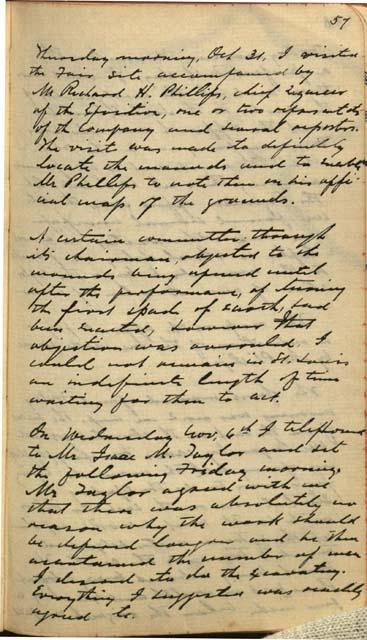 57
Thursday morning, Oct 31, I visited
the Fair site accompanied by
Mr Richard H. Phillips, chief Engineer
of the Exposition, one or two representatives
of the Company and several reporters.
The visit was made to definitely
locate the mounds and to enable
Mr Phillips to note them on his offi-
cial maps of the grounds.
A certain committee, through
its chairman, objected to the
mounds being opened until
after the performance, of turning
the first spade of earth, had
been enacted, however that
objection was overruled. I
could not remain in St. Louis
an indefinite length of time
waiting for them to act.
On Wednesday Nov. 6th I telephoned
to Mr Isaac M. Taylor and set
the following Friday morning.
Mr Taylor agreed with me
that there was absolutely no
reason why the work should
be deferred longer and he then
ascertained the number of men
I desired to do the excavating.
Everything I suggested was readily
agreed to.